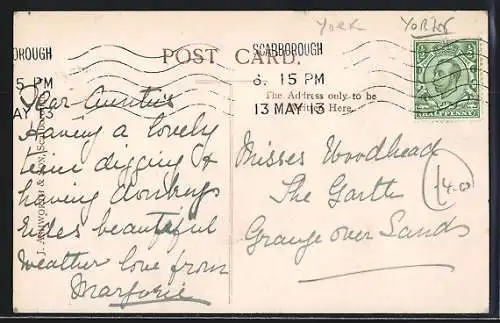 York
YORKS
SCARBOROUGH
8. 15 PM
13 MAY 13
BOROUGH
15 PM
MAY 13
POST CARD.
The Address only to be
Written Here.
HALFPENNY
Dear Aunties
Having a lovely
time digging &
having donkeys
rides beautiful
weather love from
Marjorie
Misses Woodhead
The Garth
Grange over Sands
£4.00